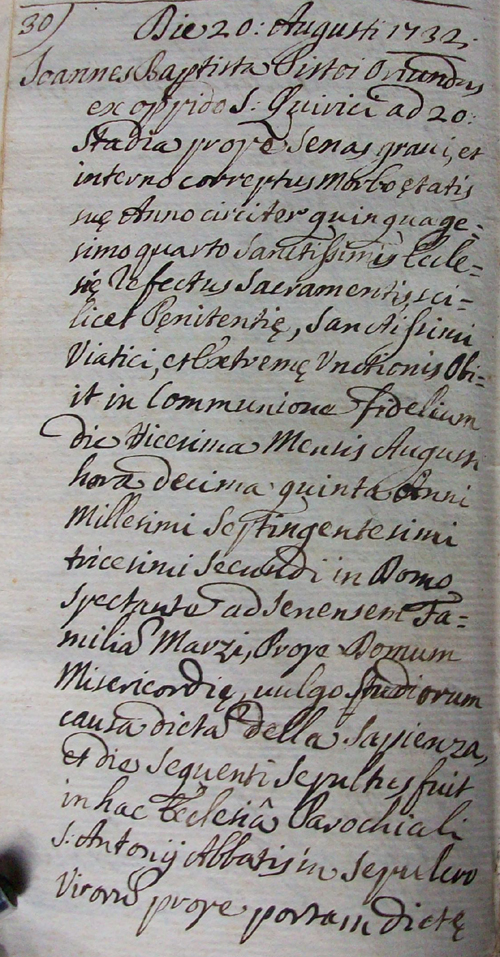 30) Die 20: Augusti 1732;
Joannes Baptista Pistoi Oriundus
ex oppido S: Quirici ad 20:
Stadia prope Senas graui, et
interno correptus Morbo ętatis
suę Anno circiter quinquage=
simo quarto Sanctissimis Eccle=
się Refectus Sacramentis, sci=
licet Pęnitentię, Sanctissimi
Viatici, et Extremę Unctionis Obi=
it in Communione fidelium
die Vicesima Mensis Augusti
hora decima quinta Anni
Millesimi Septingentesimi
tricesimi secundi in Domo
spectante ad Senensem Fa=
milia Marzi, Prope Domum
Misericordię, uulgo studiorum
causa dicta della Sapienza,
et die sequenti Sepultus fuit
in hac Ecclesiâ Parochiali
S: Antonij Abbatis in Sepulcro
Viroru prope portam dictę